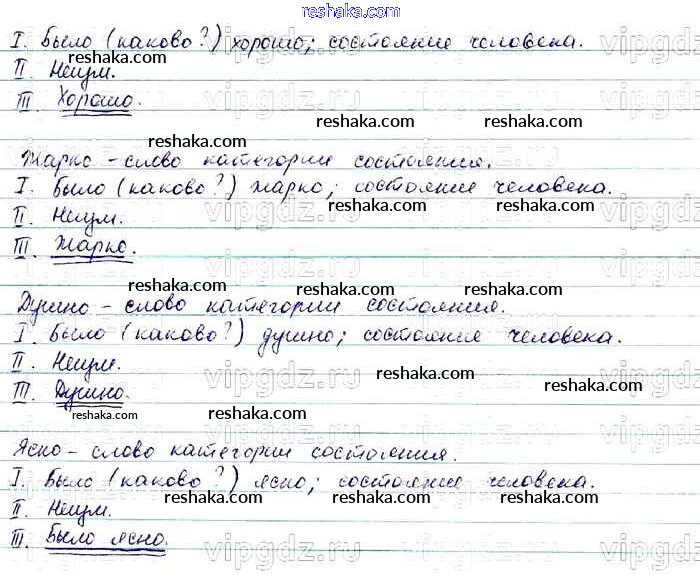 reshaka.com
I. Было (каково?) хорошо; состояние человека.
II. Неизм.
reshaka.com
III. Хорошо.
reshaka.com
reshaka.com
Жарко - слово категории состояния.
I. Было (каково?) жарко; состояние человека.
II. Неизм.
reshaka.com
III. Жарко.
reshaka.com
Душно - слово категории состояния.
I. Было (каково?) душно; состояние человека.
II. Неизм.
reshaka.com
III. Душно.
reshaka.com
reshaka.com
Ясно - слово категории состояния.
I. Было (каково?) ясно; состояние человека.
reshaka.com
reshaka.com
II. Неизм.
III. Было ясно.
vipgdz.ru